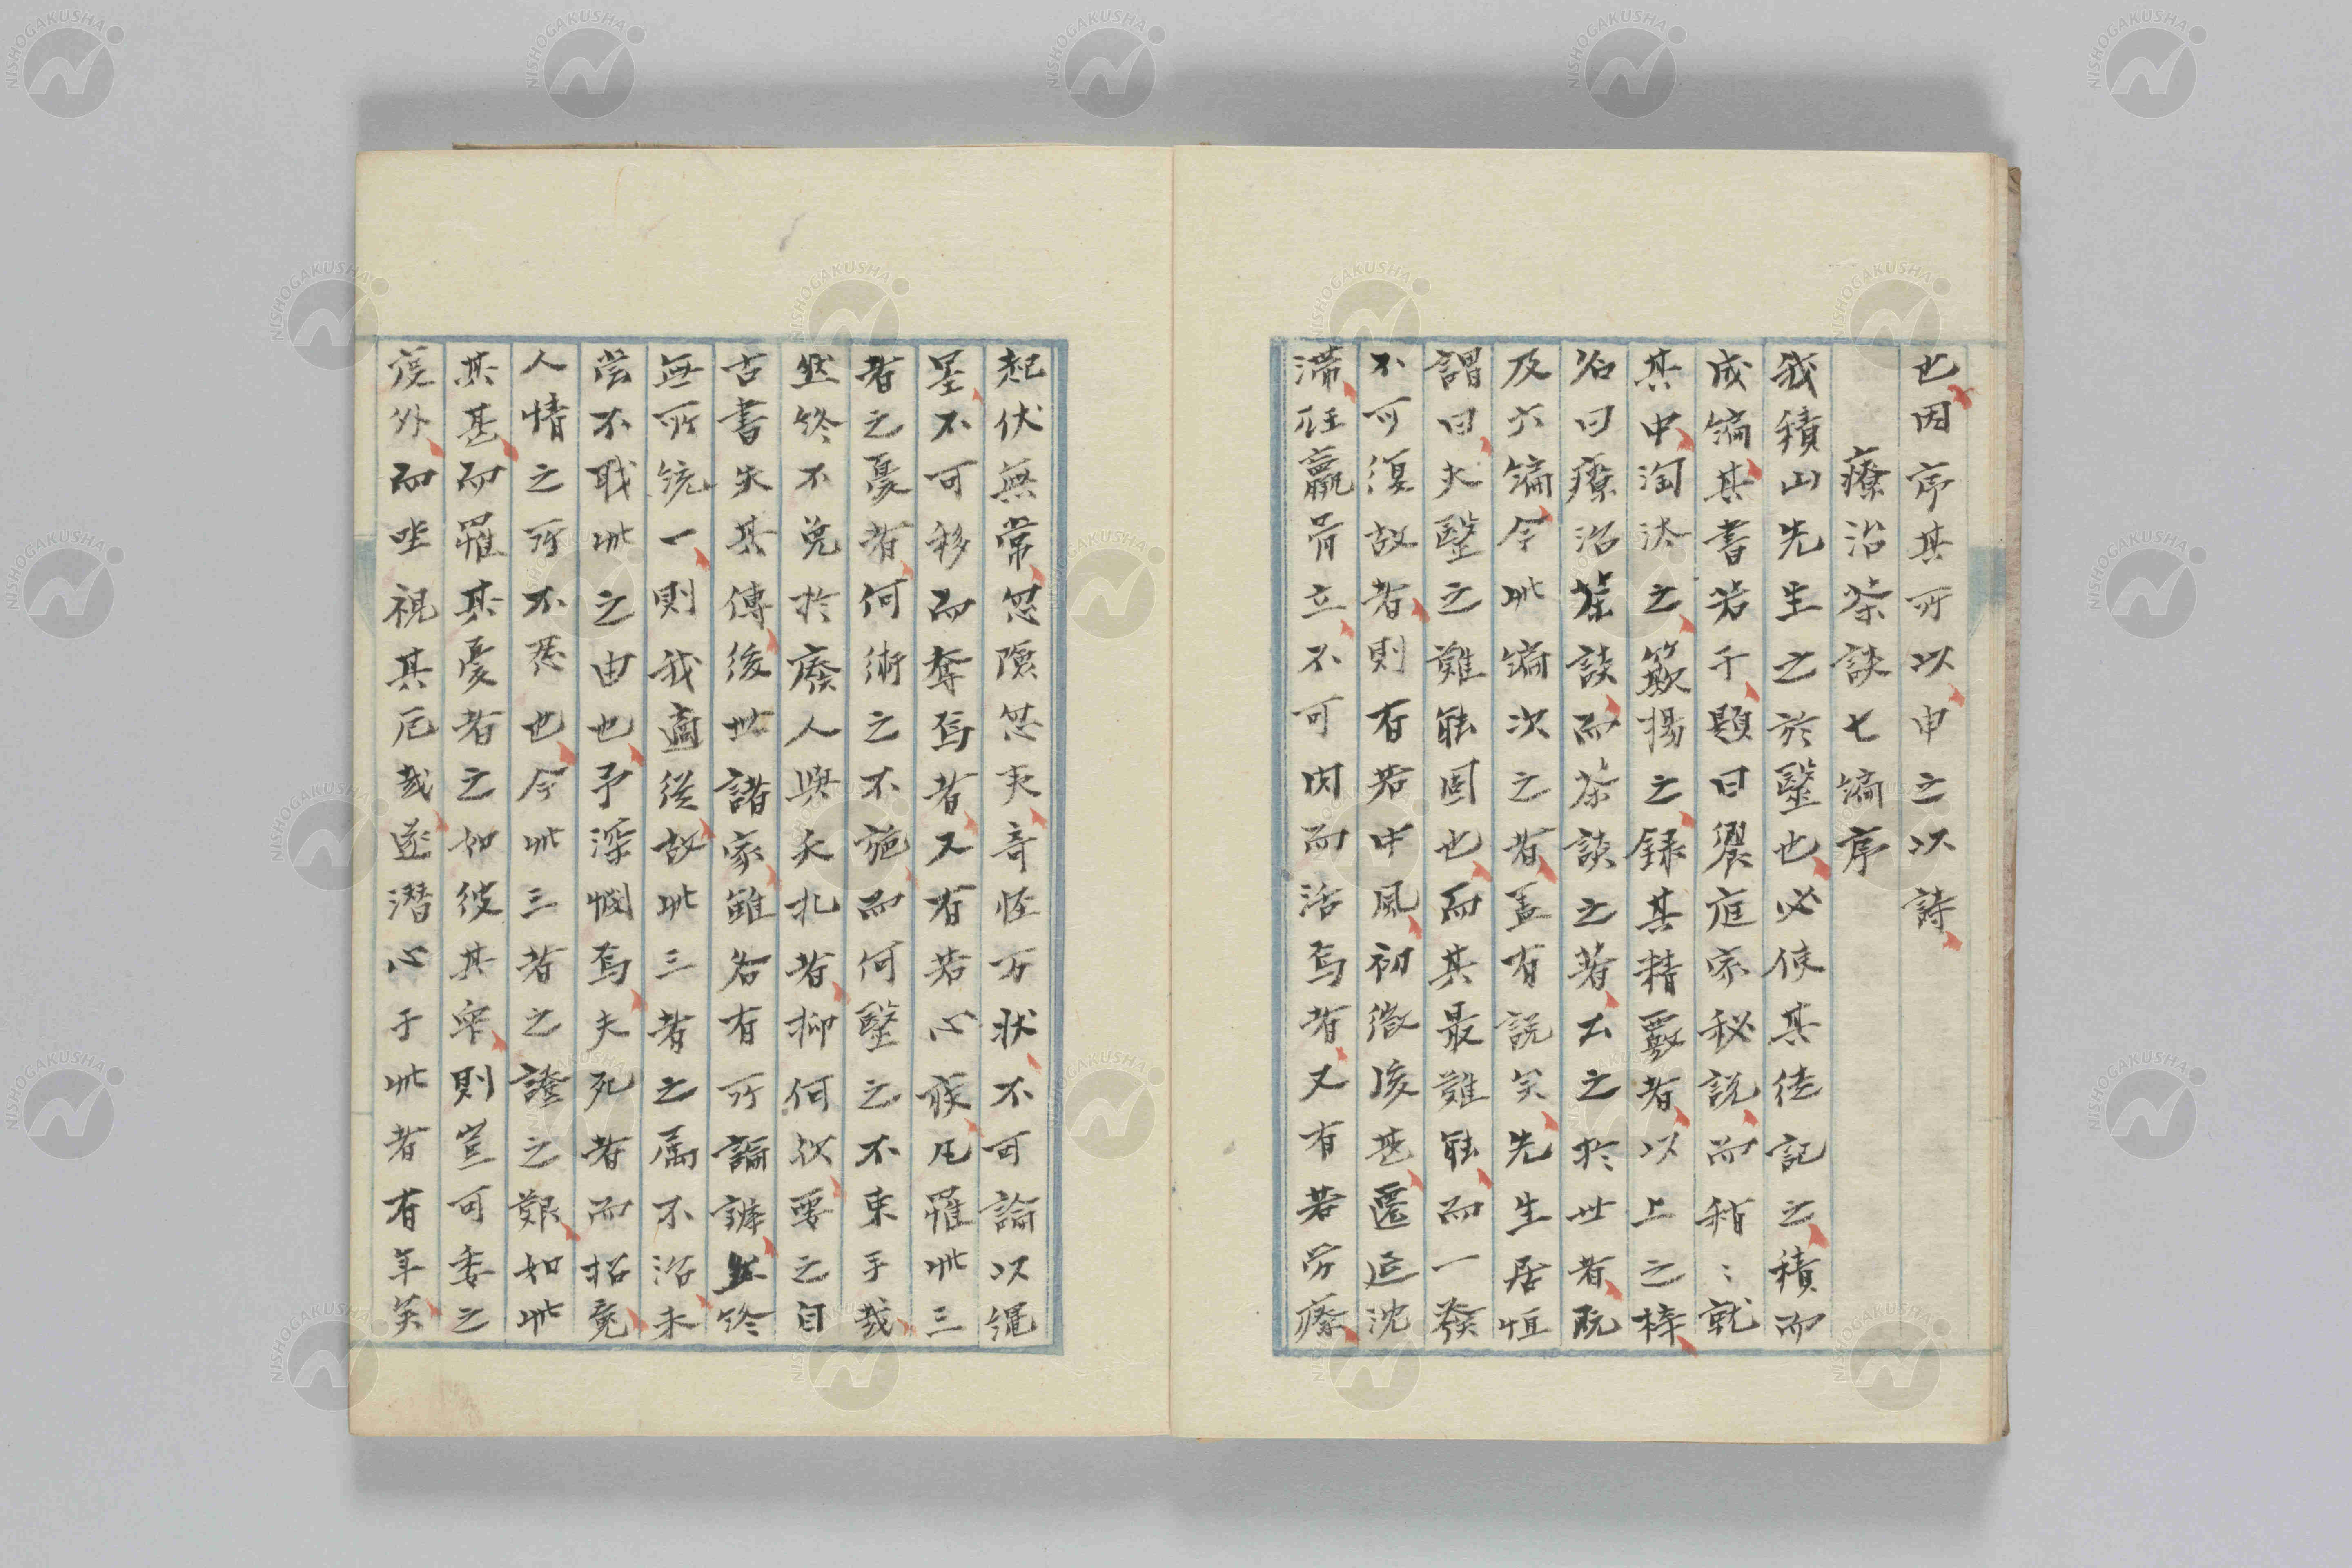 也因序其所以申之以詩
療治茶談七編序
我積山先生之於醫也必使其徒記之積而
成編其書若干題曰濯庭家秘說而稍〻就
其中淘汰之簸揚之錄其精覈者以上之梓
名曰療治茶談而茶談之著公之於世者既
及六編今此編次之者蓋有說矣先生居恒
謂曰夫醫之難能固也而其最難能而一發
不可復故者則有若中風初微後甚遷延沈
滯尫羸骨立不可肉而活焉者又有若勞瘵
起伏無常忽隱忽夾奇怪万狀不可論以繩
墨不可移而奪焉者又有若心疾凡罹此三
者之憂者何術之不施而何醫之不束手哉
然終不免於廢人與夭札者抑何以要之自
古書失其傳後世諸家雖各有所論辨然終
無所統一則我適從故此三者之屬不治未
嘗不職此之由也予深憫焉夫死者而招竟
人情之所不忍也今此三者之證之艱如此
其甚而罹其憂者之如彼其眾則豈可委之
度外而坐視其厄哉遂潛心于此者有年矣
NISHOGAKUSHA